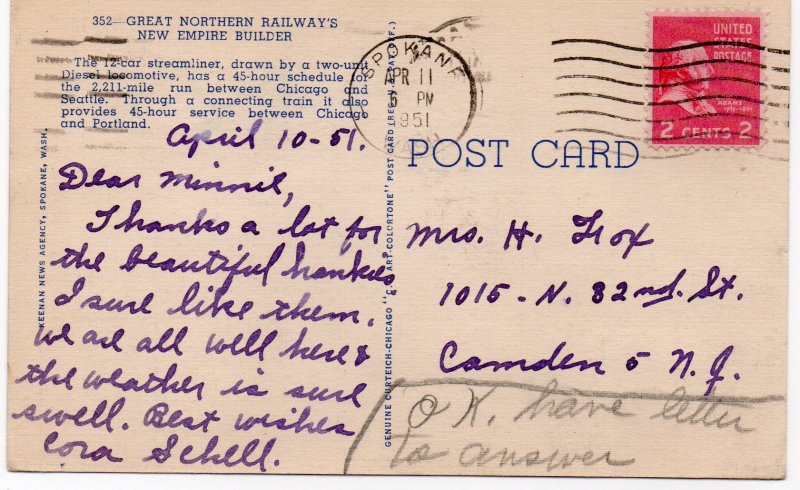 352—GREAT NORTHERN RAILWAY'S
NEW EMPIRE BUILDER
The 12-car streamliner, drawn by a two-unit
Diesel locomotive, has a 45-hour schedule for
the 2,211-mile run between Chicago and
Seattle. Through a connecting train it also
provides 45-hour service between Chicago
and Portland.
April 10-51.
Dear Minnie,
Thanks a lot for
the beautiful hankies,
I sure like them,
we are all well here &
the weather is sure
swell. Best wishes
Cora Schell.
KEENAN NEWS AGENCY, SPOKANE, WASH.
GENUINE CURTEICH-CHICAGO "C.T. ART-COLORTONE" POST CARD (REG. U.S. PAT. OFF.)
SPOKANE
APR 11
6 PM
1951
UNITED
STATES
POSTAGE
ADAMS
2 CENTS 2
POST CARD
Mrs. H. Fox
1015-N. 32nd. St.
Camden 5 N.J.
OK, have letter
to answer